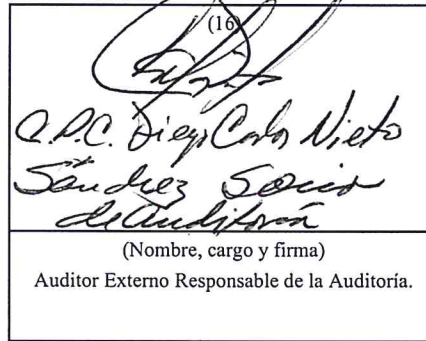 (16)
C.P.C. Diego Carlos Nieto
Sánchez Socio
de Auditoría
(Nombre, cargo y firma)
Auditor Externo Responsable de la Auditoría.